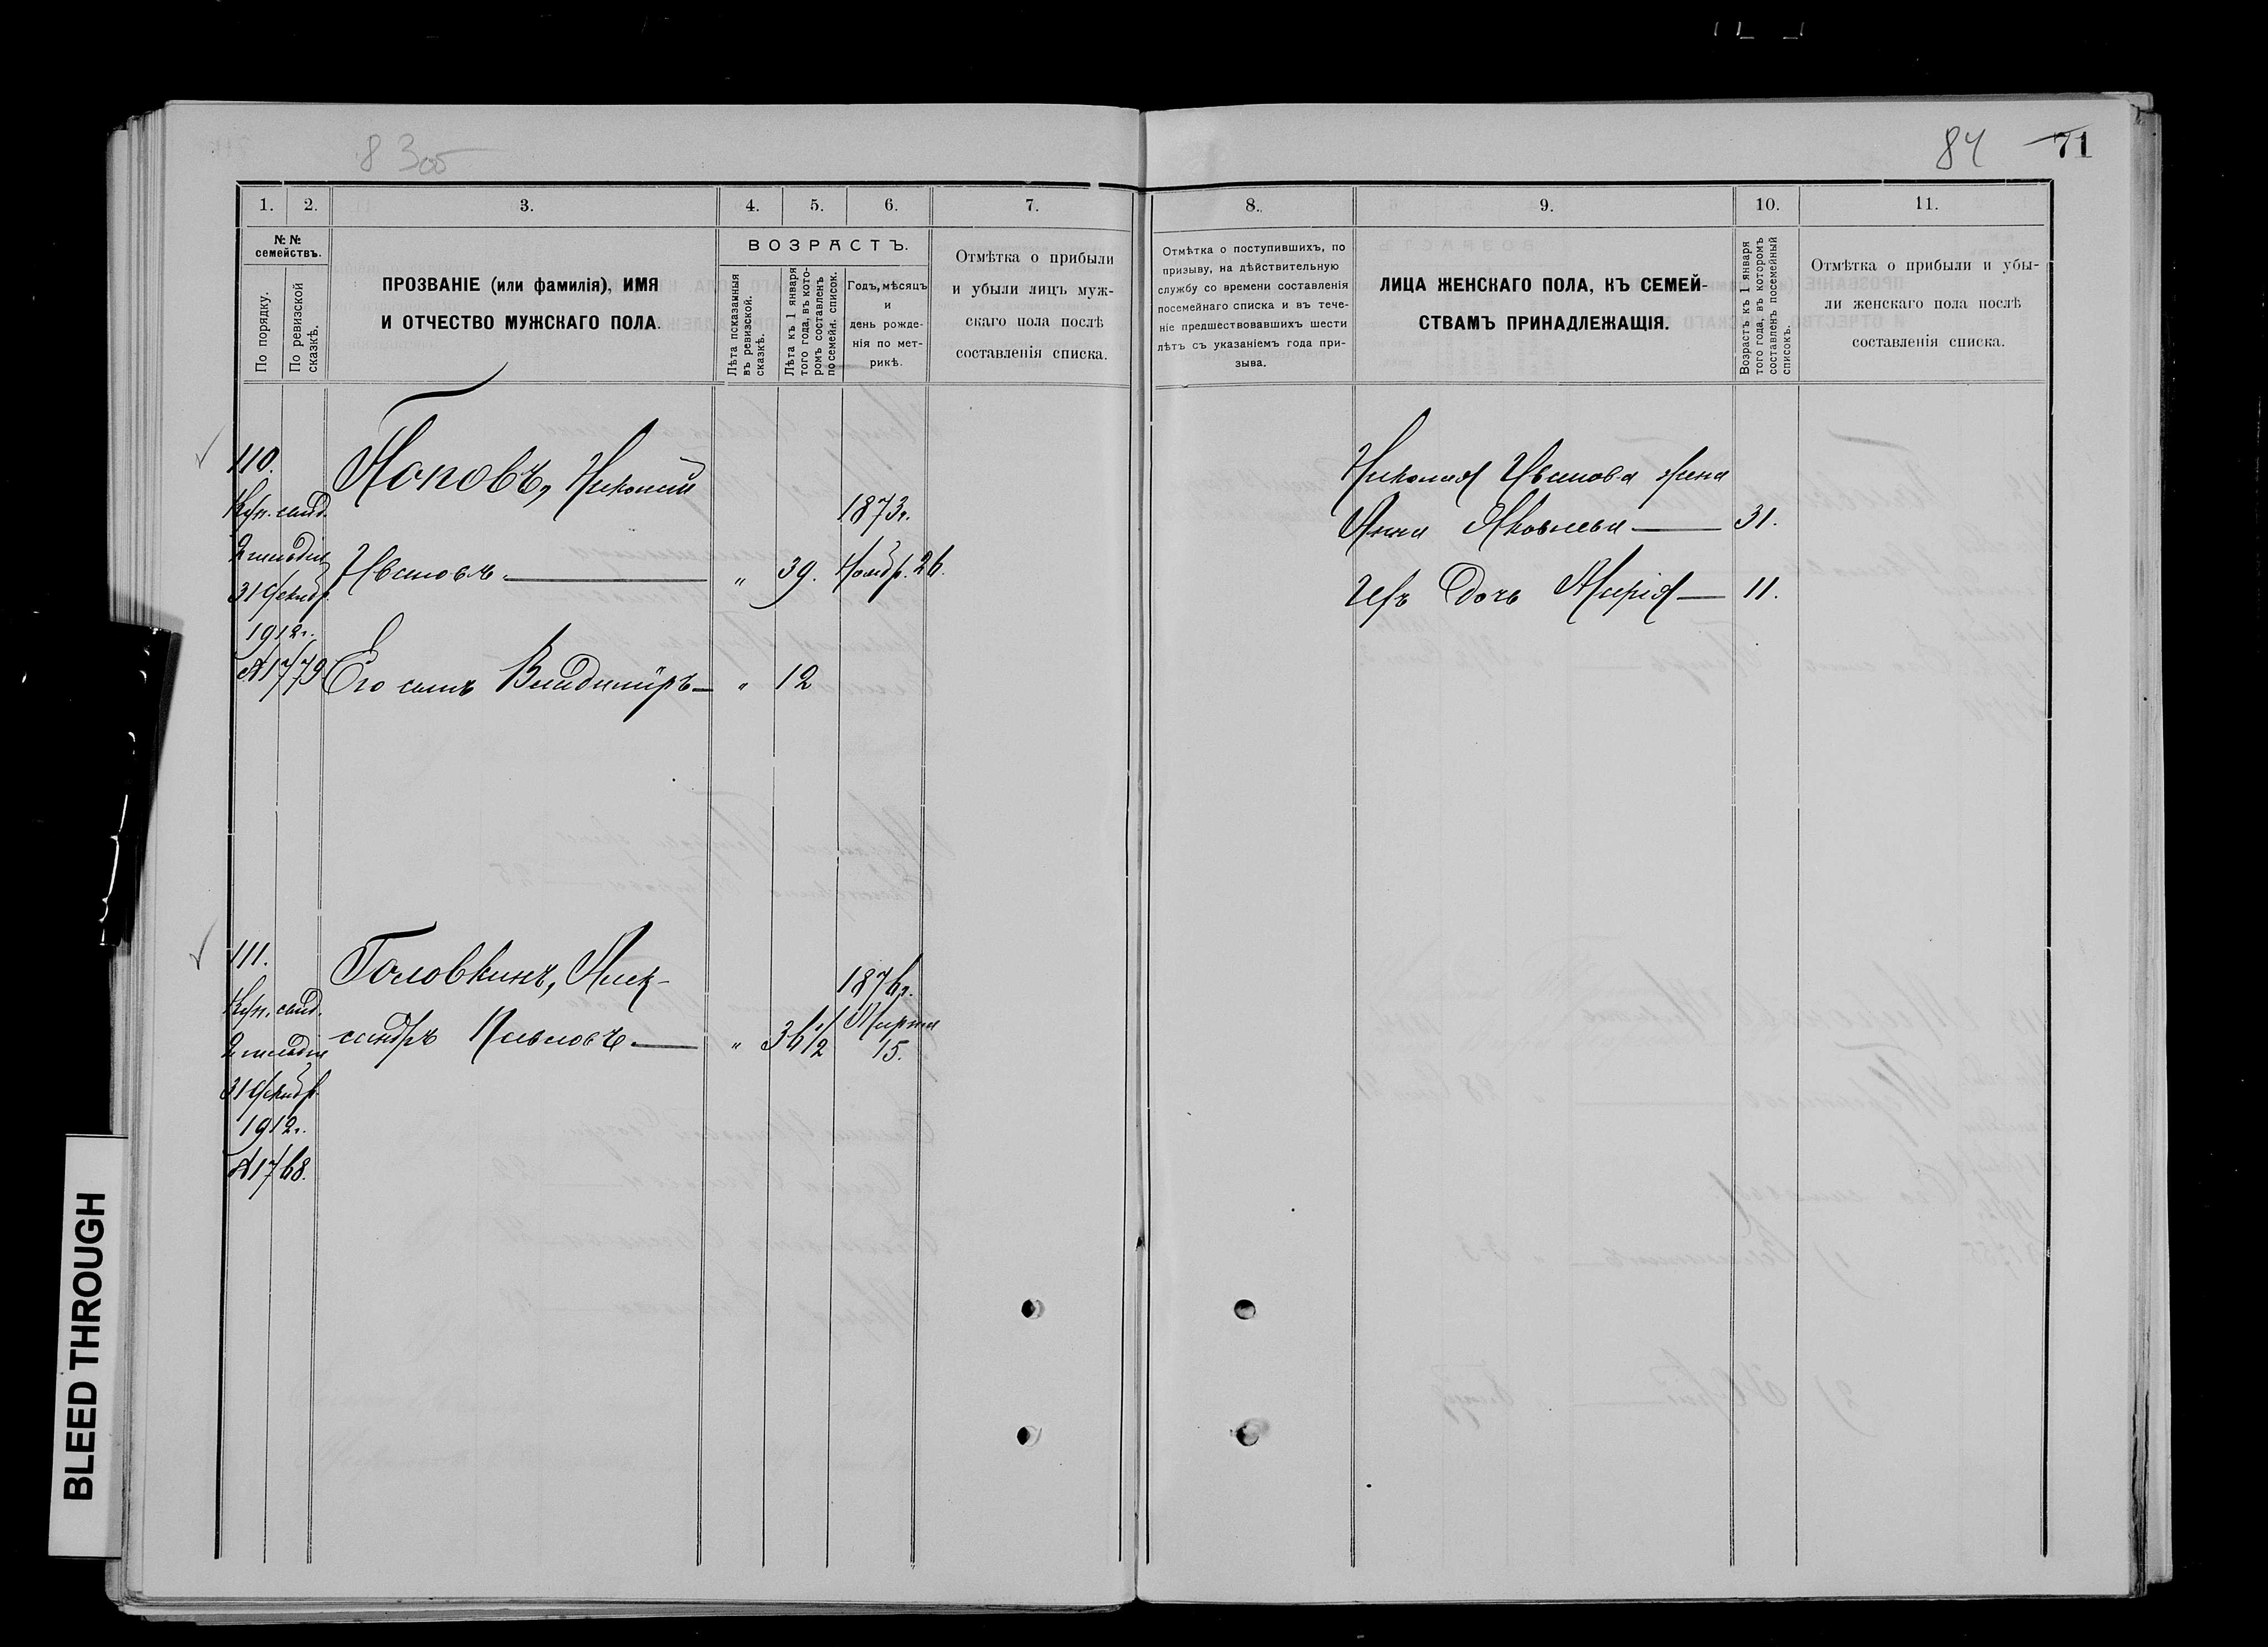 83об
84 71
1. 2. 3. 4. 5. 6. 7.
№ № семействъ.
По порядку.
По ревизской сказкѣ.
ПРОЗВАНІЕ (или фамилія), ИМЯ
И ОТЧЕСТВО МУЖСКАГО ПОЛА.
ВОЗРАСТЪ.
Лѣта показанныя
въ ревизской.
сказкѣ.
Лѣта къ 1 января
того года, въ кото-
ромъ составленъ
посемейн. список.
Годъ, мѣсяцъ
и
день рожде-
нія по мет-
рикѣ.
Отмѣтка о прибыли
и убыли лицъ муж-
скаго пола послѣ
составленія списка.
110.
Куп. свид.
2 гильдіи
31 Декабр.
1912г.
№ 1779
Поповъ, Николай
Ивановъ — „ 39. 1873г. Ноябр. 26.
Его сынъ Владиміръ — „ 12
111.
Куп. свид.
2 гильдіи
31 Декабр.
1912г.
№ 1768.
Головкинъ, Алек-
сандръ Павловъ — „ 36 1/2 1876г. Марта 15.
8. 9. 10. 11.
Отмѣтка о поступившихъ, по
призыву, на дѣйствительную
службу со времени составленія
посемейнаго списка и въ тече-
ніе предшествовавшихъ шести
лѣтъ съ указаніемъ года при-
зыва.
ЛИЦА ЖЕНСКАГО ПОЛА, КЪ СЕМЕЙ-
СТВАМЪ ПРИНАДЛЕЖАЩІЯ.
Возрастъ къ 1 января
того года, въ которомъ
составленъ посемейный
списокъ.
Отмѣтка о прибыли и убы-
ли женскаго пола послѣ
составленія списка.
Николая Иванова жена
Анна Яковлева — 31.
Ихъ дочь Марія — 11.
BLEED THROUGH